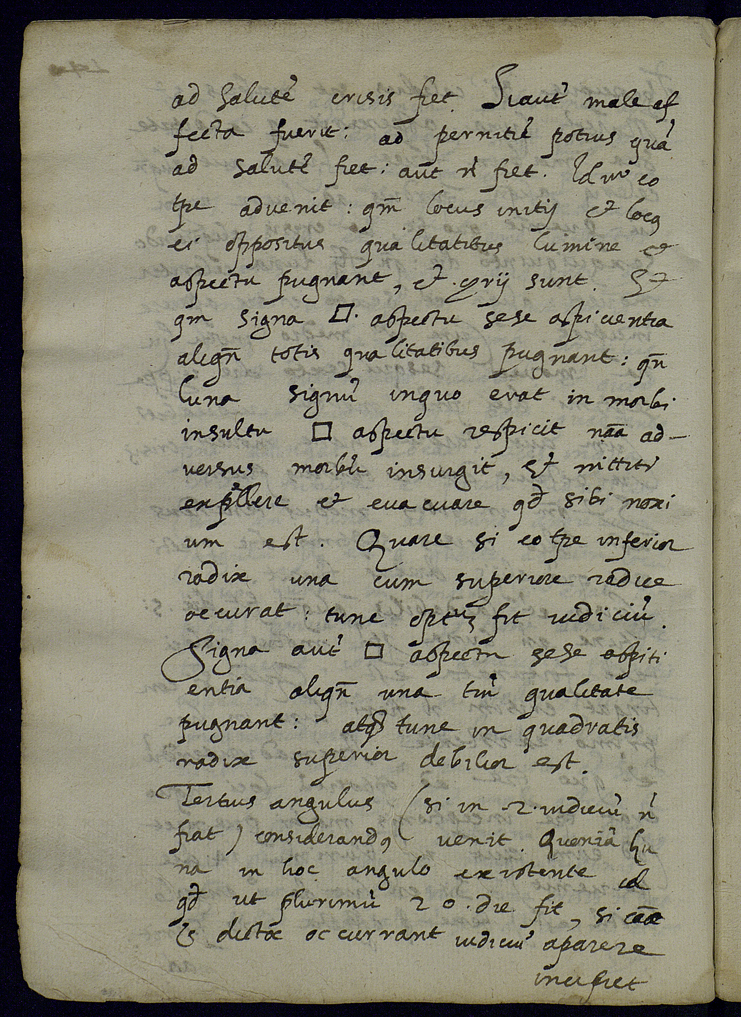 ad Salutē crisis fiet. Si autē male af
fecta fuerit: ad pernitiē potius quā
ad Salutē fiet: aut n̄ fiet. Id vº eo
tp̄e advenit: qm̄ locus initij et loco
ei oppositus qualitatibus lumine et
aspectu pugnant, et ɔrij sunt. Et
qm̄ Signa □. aspectu sese aspicientia
aliqn̄ totis qualitatibus pugnant: qn̄
luna Signū inquo erat in morbi
insultu □ aspectu respicit nāa ad-
versus morbū insurgit, et nittitr
expellere et evacuare qd̄ sibi noxi
um est. Quare si eo tp̄e inferior
radix una cum superiore radice
occurat: tunc fit iudiciū.
Signa autē □ aspectu sese aspiti
entia aliqn̄ una tm̄ qualitate
pugnant: atq3 tunc in quadratis
radix superior debilior est.
Tertius angulus (si in 2. iudiciū n̄
fiat) considerandꝰ venit. Quoniā lu
na in hoc angulo existente id
qd̄ ut plurimū 20. die fit, si
dictae occurrant iudiciū aparere
incipiet